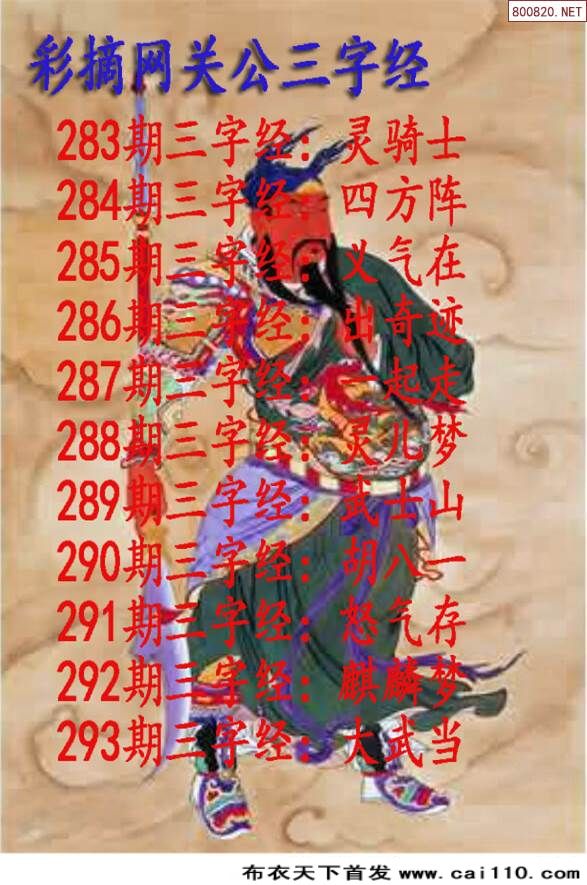 800820.NET
彩摘网关公三字经
283期三字经：灵骑士
284期三字经：四方阵
285期三字经：义气在
286期三字经：出奇迹
287期三字经：一起走
288期三字经：灵儿梦
289期三字经：武士山
290期三字经：胡八一
291期三字经：怒气存
292期三字经：麒麟梦
293期三字经：大武当
布衣天下首发 www.cai110.com